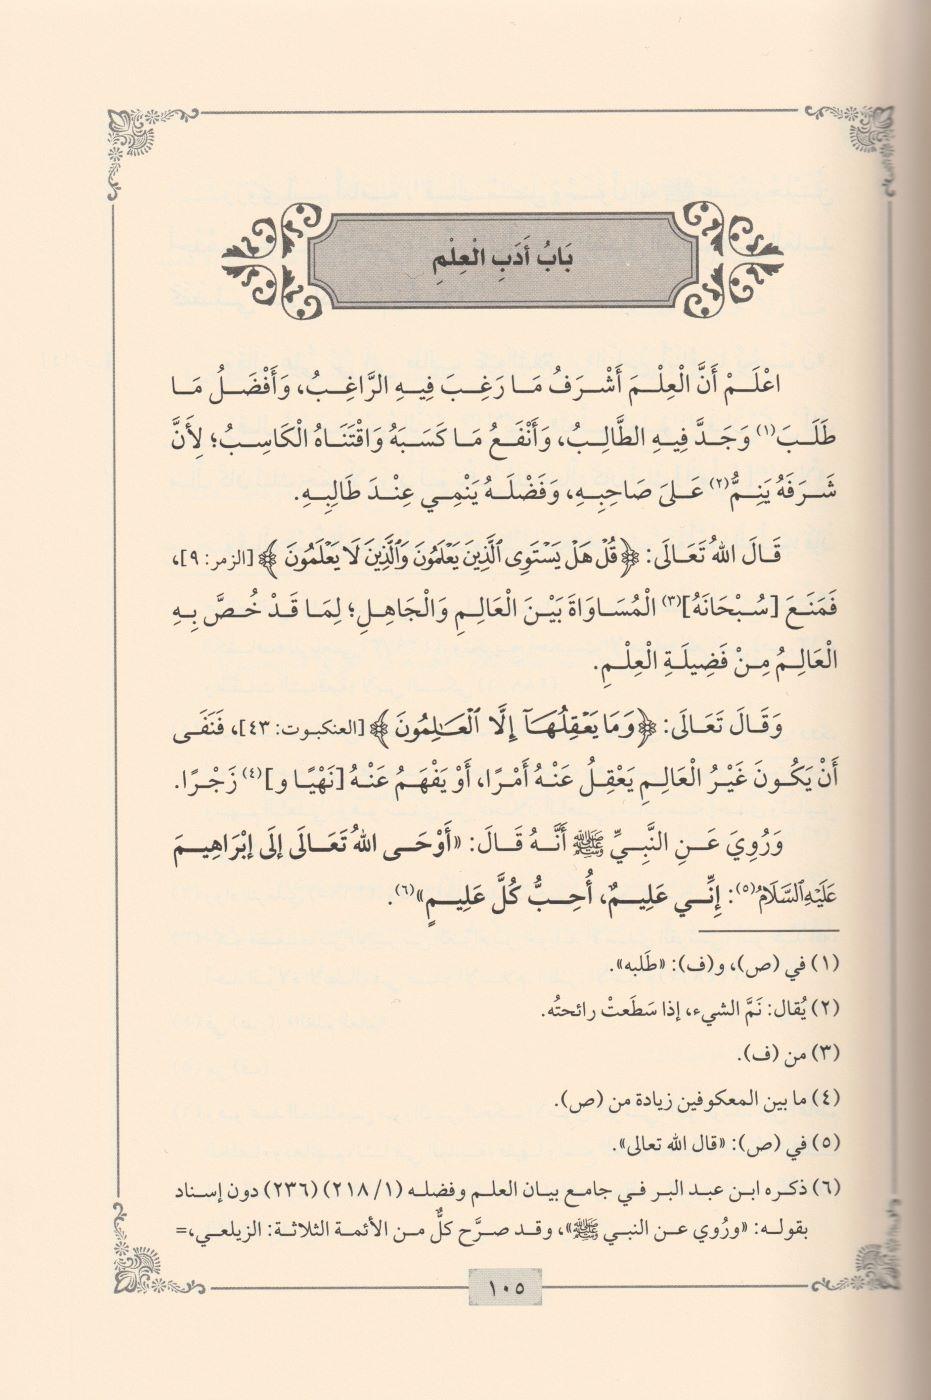 بَابُ أَدَبِ الْعِلْمِ
اعْلَمْ أَنَّ الْعِلْمَ أَشْرَفُ مَا رَغِبَ فِيهِ الرَّاغِبُ، وَأَفْضَلُ مَا
طَلَبَ(١) وَجَدَّ فِيهِ الطَّالِبُ، وَأَنْفَعُ مَا كَسَبَهُ وَاقْتَنَاهُ الْكَاسِبُ؛ لِأَنَّ
شَرَفَهُ يَنِمُّ(٢) عَلَى صَاحِبِهِ، وَفَضْلَهُ يَنْمِي عِنْدَ طَالِبِهِ.
قَالَ اللهُ تَعَالَى: ﴿قُلْ هَلْ يَسْتَوِى الَّذِينَ يَعْلَمُونَ وَالَّذِينَ لَا يَعْلَمُونَ﴾ [الزمر: ٩]،
فَمَنَعَ [سُبْحَانَهُ](٣) الْمُسَاوَاةَ بَيْنَ الْعَالِمِ وَالْجَاهِلِ؛ لِمَا قَدْ خُصَّ بِهِ
الْعَالِمُ مِنْ فَضِيلَةِ الْعِلْمِ.
وَقَالَ تَعَالَى: ﴿وَمَا يَعْقِلُهَآ إِلَّا الْعَـٰلِمُونَ﴾ [العنكبوت: ٤٣]، فَنَفَى
أَنْ يَكُونَ غَيْرُ الْعَالِمِ يَعْقِلُ عَنْهُ أَمْرًا، أَوْ يَفْهَمُ عَنْهُ [نَهْيًا و](٤) زَجْرًا.
وَرُوِيَ عَنِ النَّبِيِّ ﷺ أَنَّهُ قَالَ: «أَوْحَى اللهُ تَعَالَى إِلَى إِبْرَاهِيمَ
عَلَيْهِ السَّلَامُ(٥): إِنِّي عَلِيمٌ، أُحِبُّ كُلَّ عَلِيمٍ»(٦).
(١) في (ص)، و(ف): «طَلبه».
(٢) يُقال: نَمَّ الشيء، إذا سَطَعتْ رائحتُه.
(٣) من (ف).
(٤) ما بين المعكوفين زيادة من (ص).
(٥) في (ص): «قال الله تعالى».
(٦) ذكره ابن عبد البر في جامع بيان العلم وفضله (١/ ٢١٨) (٢٣٦) دون إسناد
بقوله: «ورُوي عن النبي ﷺ»، وقد صرَّح كلٌّ من الأئمة الثلاثة: الزيلعي،=
١٠٥